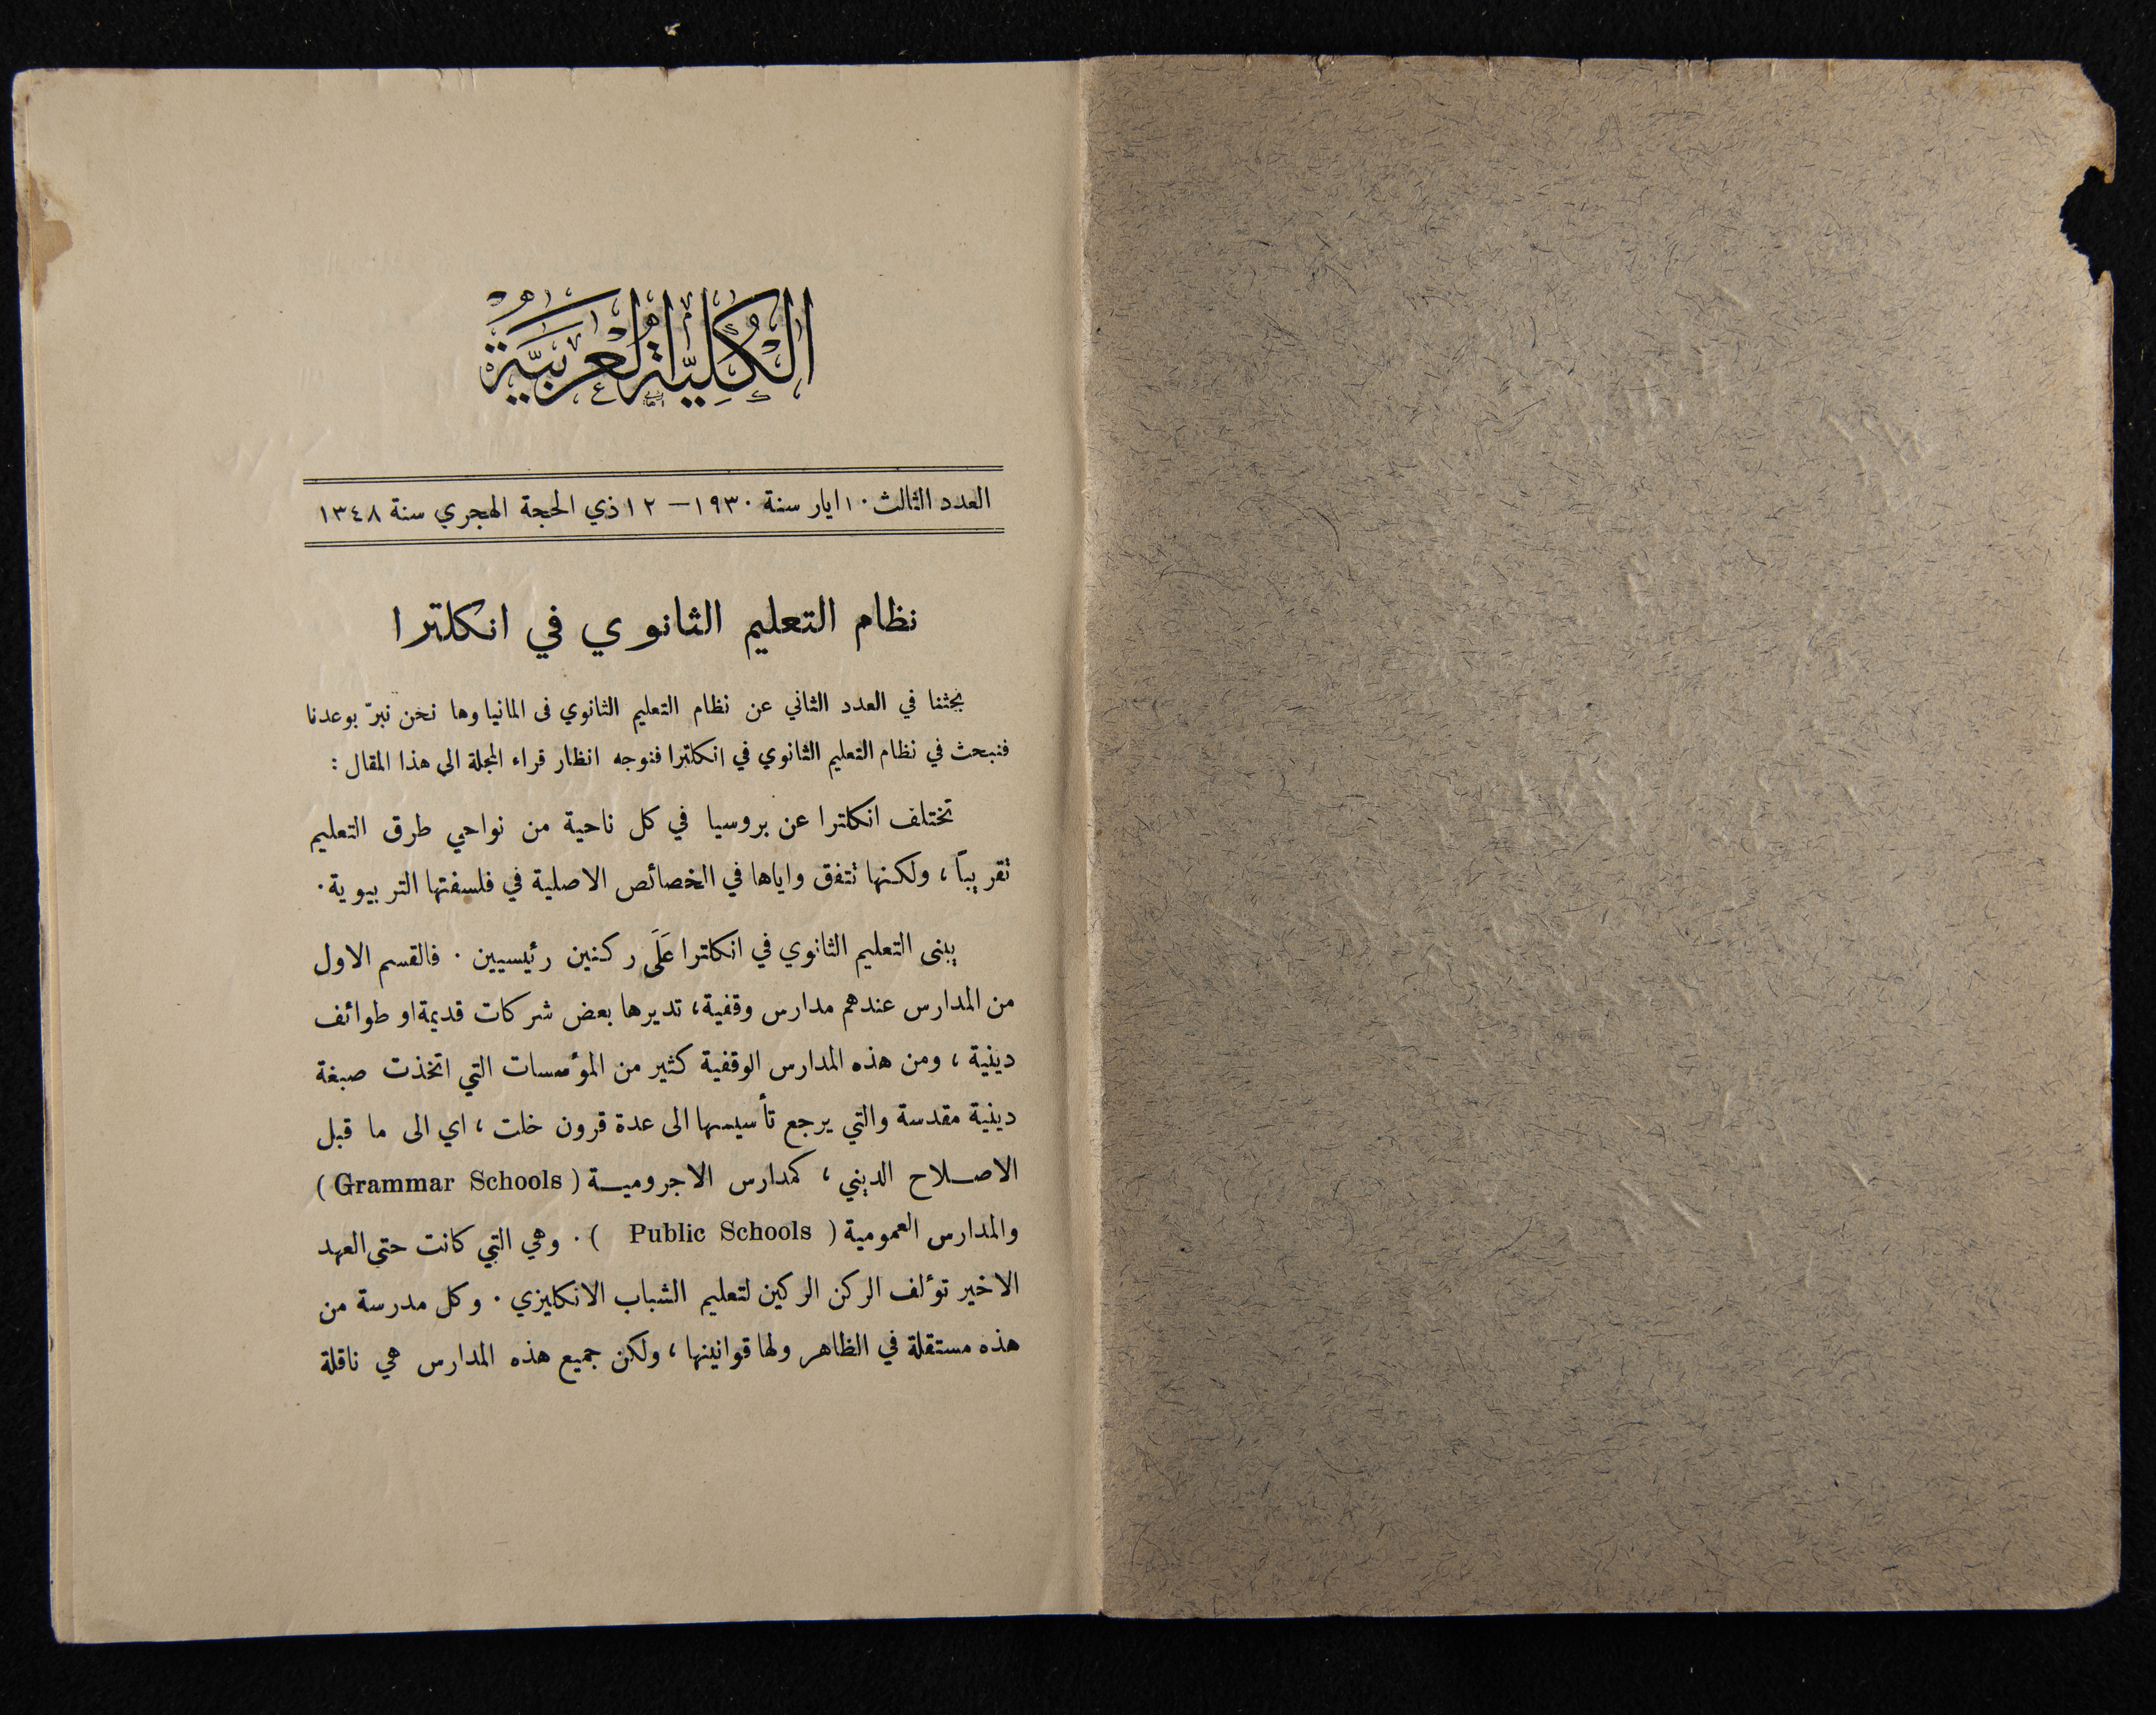 الكُلِيَّة العَرَبيَّةُ
العدد الثالث ١٠ ايار سنة ١٩٣٠ – ١٢ ذي الحجة الهجري سنة ١٣٤٨
نظام التعليم الثانوي في انكلترا
بحثنا في العدد الثاني عن نظام التعليم الثانوي فى المانيا وها نحن نبرّ بوعدنا
فنبحث في نظام التعليم الثانوي في انكلترا فنوجه انظار قراء المجلة الى هذا المقال :
تختلف انكلترا عن بروسيا في كل ناحية من نواحي طرق التعليم
تقريباً ، ولكنها تتفق واياها في الخصائص الاصلية في فلسفتها التربيوية .
يبنى التعليم الثانوي في انكلترا عَلَى ركنين رئيسيين . فالقسم الاول
من المدارس عندهم مدارس وقفية ، تديرها بعض شركات قديمة او طوائف
دينية ، ومن هذه المدارس الوقفية كثير من المؤسسات التي اتخذت صبغة
دينية مقدسة والتي يرجع تأسيسها الى عدة قرون خلت ، اي الى ما قبل
الاصلاح الديني ، كمدارس الاجرومية ( Grammar Schools )
والمدارس العمومية ( Public Schools ) . وهي التي كانت حتى العهد
الاخير تؤلف الركن الركين لتعليم الشباب الانكليزي . وكل مدرسة من
هذه مستقلة في الظاهر ولها قوانينها ، ولكن جميع هذه المدارس هي ناقلة